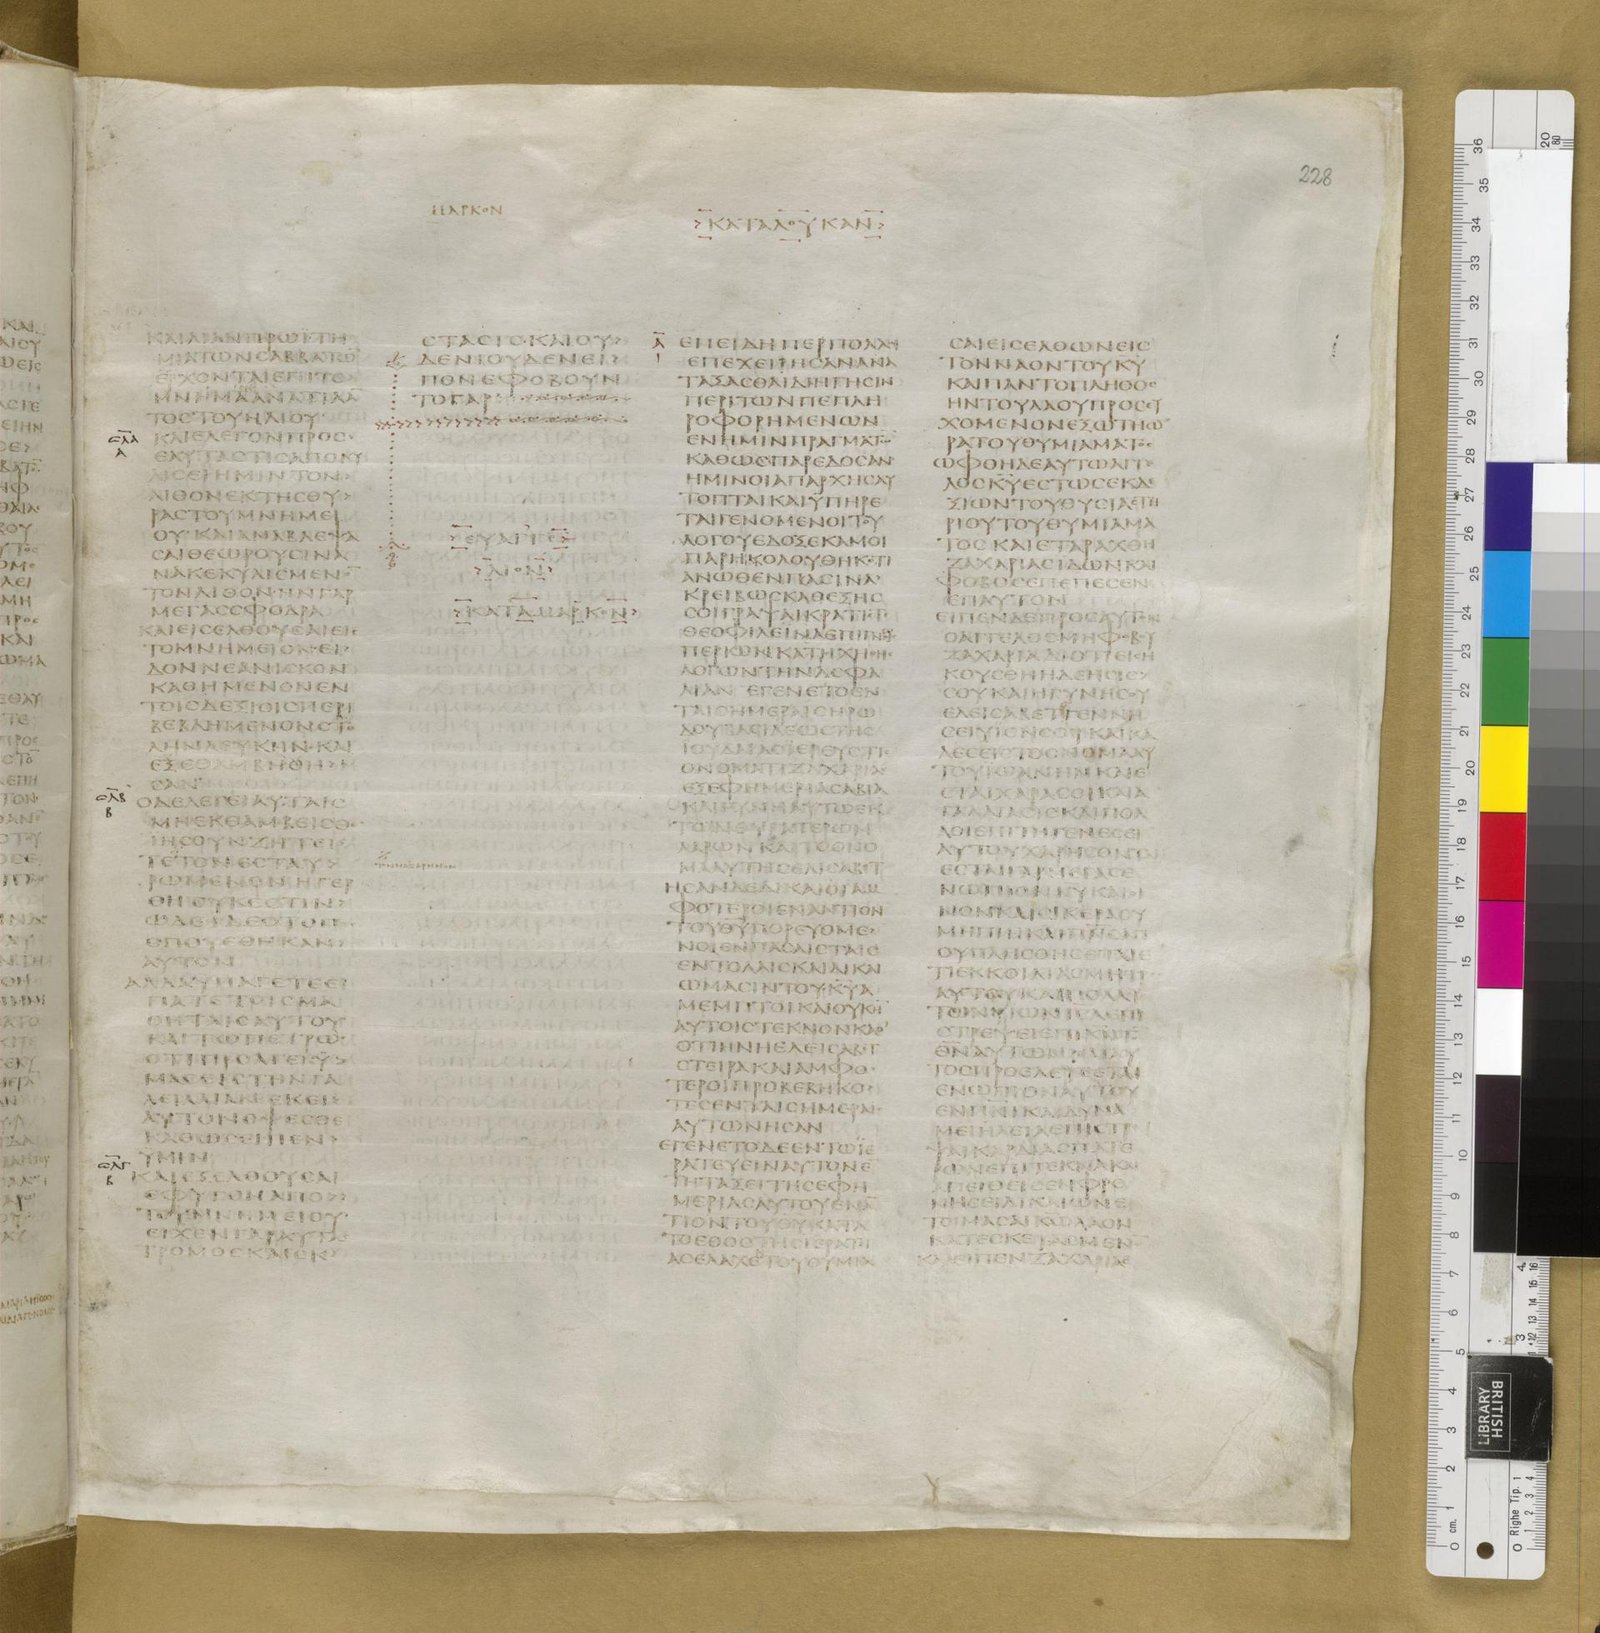 228
ΜΑΡΚΟΝ
ΚΑΤΑ ΛΟΥΚΑΝ
ΚΑΙ ΛΙΑΝ ΠΡΩΪ ΤΗ
ΜΙΑ ΤΩΝ ΣΑΒΒΑΤΩ̅
ΕΡΧΟΝΤΑΙ ΕΠΙ ΤΟ
ΜΝΗΜΑ ΑΝΑΤΙΛΑ
ΤΟΣ ΤΟΥ ΗΛΙΟΥ
ΚΑΙ ΕΛΕΓΟΝ ΠΡΟΣ
ΕΑΥΤΑΣ ΤΙΣ ΑΠΟΚΥ
ΛΙΣΕΙ ΗΜΙΝ ΤΟΝ
ΛΙΘΟΝ ΕΚ ΤΗΣ ΘΥ
ΡΑΣ ΤΟΥ ΜΝΗΜΕΙ
ΟΥ ΚΑΙ ΑΝΑΒΛΕΨΑ
ΣΑΙ ΘΕΩΡΟΥΣΙΝ Α
ΝΑΚΕΚΥΛΙΣΜΕΝΟ̅
ΤΟΝ ΛΙΘΟΝ ΗΝ ΓΑΡ
ΜΕΓΑΣ ΣΦΟΔΡΑ
ΚΑΙ ΕΙΣΕΛΘΟΥΣΑΙ ΕΙΣ
ΤΟ ΜΝΗΜΕΙΟΝ ΕΙ
ΔΟΝ ΝΕΑΝΙΣΚΟΝ
ΚΑΘΗΜΕΝΟΝ ΕΝ
ΤΟΙΣ ΔΕΞΙΟΙΣ ΠΕΡΙ
ΒΕΒΛΗΜΕΝΟΝ ΣΤΟ
ΛΗΝ ΛΕΥΚΗΝ ΚΑΙ
ΕΞΕΘΑΜΒΗΘΗ
ΣΑΝ
Ο ΔΕ ΛΕΓΕΙ ΑΥΤΑΙΣ
ΜΗ ΕΚΘΑΜΒΕΙΣΘΕ
ΙΗΣΟΥΝ ΖΗΤΕΙ
ΤΕ ΤΟΝ ΕΣΤΑΥ
ΡΩΜΕΝΟΝ ΗΓΕΡ
ΘΗ ΟΥΚ ΕΣΤΙΝ
ΩΔΕ ΙΔΕ Ο ΤΟΠΟΣ
ΟΠΟΥ ΕΘΗΚΑΝ
ΑΥΤΟΝ
ΑΛΛΑ ΥΠΑΓΕΤΕ ΕΙ
ΠΑΤΕ ΤΟΙΣ ΜΑ
ΘΗΤΑΙΣ ΑΥΤΟΥ
ΚΑΙ ΤΩ ΠΕΤΡΩ
ΟΤΙ ΠΡΟΑΓΕΙ Υ
ΜΑΣ ΕΙΣ ΤΗΝ ΓΑ
ΛΕΙΛΑΙΑΝ ΕΚΕΙ
ΑΥΤΟΝ ΟΨΕΣΘΕ
ΚΑΘΩΣ ΕΙΠΕΝ
ΥΜΙΝ
ΚΑΙ ΕΞΕΛΘΟΥΣΑΙ
ΕΦΥΓΟΝ ΑΠΟ
ΤΟΥ ΜΝΗΜΕΙΟΥ
ΕΙΧΕΝ ΓΑΡ ΑΥΤΑΣ
ΤΡΟΜΟΣ ΚΑΙ ΕΚ
ΣΤΑΣΙΣ ΚΑΙ ΟΥ
ΔΕΝΙ ΟΥΔΕΝ ΕΙ
ΠΟΝ ΕΦΟΒΟΥΝ
ΤΟ ΓΑΡ
ΕΥΑΓΓΕ
ΛΙΟΝ
ΚΑΤΑ ΜΑΡΚΟΝ
ΕΠΕΙΔΗΠΕΡ ΠΟΛΛΟΙ
ΕΠΕΧΕΙΡΗΣΑΝ ΑΝΑ
ΤΑΞΑΣΘΑΙ ΔΙΗΓΗΣΙΝ
ΠΕΡΙ ΤΩΝ ΠΕΠΛΗ
ΡΟΦΟΡΗΜΕΝΩΝ
ΕΝ ΗΜΙΝ ΠΡΑΓΜΑΤΩ̅
ΚΑΘΩΣ ΠΑΡΕΔΟΣΑΝ
ΗΜΙΝ ΟΙ ΑΠ ΑΡΧΗΣ ΑΥ
ΤΟΠΤΑΙ ΚΑΙ ΥΠΗΡΕ
ΤΑΙ ΓΕΝΟΜΕΝΟΙ ΤΟΥ
ΛΟΓΟΥ ΕΔΟΞΕ ΚΑΜΟΙ
ΠΑΡΗΚΟΛΟΥΘΗΚΟΤΙ
ΑΝΩΘΕΝ ΠΑΣΙΝ Α
ΚΡΕΙΒΩΣ ΚΑΘΕΞΗΣ
ΣΟΙ ΓΡΑΨΑΙ ΚΡΑΤΙΣΤΕ
ΘΕΟΦΙΛΕ ΙΝΑ ΕΠΙΓΝΩΣ
ΠΕΡΙ ΩΝ ΚΑΤΗΧΗΘΗΣ
ΛΟΓΩΝ ΤΗΝ ΑΣΦΑ
ΛΙΑΝ ΕΓΕΝΕΤΟ ΕΝ
ΤΑΙΣ ΗΜΕΡΑΙΣ ΗΡΩ
ΔΟΥ ΒΑΣΙΛΕΩΣ ΤΗΣ
ΙΟΥΔΑΙΑΣ ΙΕΡΕΥΣ ΤΙΣ
ΟΝΟΜΑΤΙ ΖΑΧΑΡΙΑΣ
ΕΞ ΕΦΗΜΕΡΙΑΣ ΑΒΙΑ
ΚΑΙ ΓΥΝΗ ΑΥΤΩ ΕΚ
ΤΩΝ ΘΥΓΑΤΕΡΩΝ
ΑΑΡΩΝ ΚΑΙ ΤΟ ΟΝΟ
ΜΑ ΑΥΤΗΣ ΕΛΙΣΑΒΕΤ
ΗΣΑΝ ΔΕ ΔΙΚΑΙΟΙ ΑΜ
ΦΟΤΕΡΟΙ ΕΝΑΝΤΙΟΝ
ΤΟΥ ΘΥ ΠΟΡΕΥΟΜΕ
ΝΟΙ ΕΝ ΠΑΣΑΙΣ ΤΑΙΣ
ΕΝΤΟΛΑΙΣ ΚΑΙ ΔΙΚΑΙ
ΩΜΑΣΙΝ ΤΟΥ ΚΥ Α
ΜΕΜΠΤΟΙ ΚΑΙ ΟΥΚ Η̅
ΑΥΤΟΙΣ ΤΕΚΝΟΝ ΚΑΘ
ΟΤΙ ΗΝ Η ΕΛΕΙΣΑΒΕΤ
ΣΤΕΙΡΑ ΚΑΙ ΑΜΦΟ
ΤΕΡΟΙ ΠΡΟΒΕΒΗΚΟ
ΤΕΣ ΕΝ ΤΑΙΣ ΗΜΕΡΑΙΣ
ΑΥΤΩΝ ΗΣΑΝ
ΕΓΕΝΕΤΟ ΔΕ ΕΝ ΤΩ ΙΕ
ΡΑΤΕΥΕΙΝ ΑΥΤΟΝ Ε̅
ΤΗ ΤΑΞΕΙ ΤΗΣ ΕΦΗ
ΜΕΡΙΑΣ ΑΥΤΟΥ ΕΝΑ̅
ΤΙΟΝ ΤΟΥ ΘΥ ΚΑΤΑ
ΤΟ ΕΘΟΣ ΤΗΣ ΙΕΡΑΤΙ
ΑΣ ΕΛΑΧΕ ΤΟΥ ΘΥΜΙΑ
ΣΑΙ ΕΙΣΕΛΘΩΝ ΕΙΣ
ΤΟΝ ΝΑΟΝ ΤΟΥ ΚΥ
ΚΑΙ ΠΑΝ ΤΟ ΠΛΗΘΟΣ
ΗΝ ΤΟΥ ΛΑΟΥ ΠΡΟΣΕΥ
ΧΟΜΕΝΟΝ ΕΞΩ ΤΗ Ω
ΡΑ ΤΟΥ ΘΥΜΙΑΜΑΤΟΣ
ΩΦΘΗ ΔΕ ΑΥΤΩ ΑΓΓΕ
ΛΟΣ ΚΥ ΕΣΤΩΣ ΕΚ ΔΕ
ΞΙΩΝ ΤΟΥ ΘΥΣΙΑΣΤΗ
ΡΙΟΥ ΤΟΥ ΘΥΜΙΑΜΑ
ΤΟΣ ΚΑΙ ΕΤΑΡΑΧΘΗ
ΖΑΧΑΡΙΑΣ ΙΔΩΝ ΚΑΙ
ΦΟΒΟΣ ΕΠΕΠΕΣΕΝ
ΕΠ ΑΥΤΟΝ
ΕΙΠΕΝ ΔΕ ΠΡΟΣ ΑΥΤΟΝ
Ο ΑΓΓΕΛΟΣ ΜΗ ΦΟΒΟΥ
ΖΑΧΑΡΙΑ ΔΙΟΤΙ ΕΙΣΗ
ΚΟΥΣΘΗ Η ΔΕΗΣΙΣ
ΣΟΥ ΚΑΙ Η ΓΥΝΗ ΣΟΥ
ΕΛΕΙΣΑΒΕΤ ΓΕΝΝΗ
ΣΕΙ ΥΙΟΝ ΣΟΙ ΚΑΙ ΚΑ
ΛΕΣΕΙΣ ΤΟ ΟΝΟΜΑ ΑΥ
ΤΟΥ ΙΩΑΝΝΗΝ ΚΑΙ Ε
ΣΤΑΙ ΧΑΡΑ ΣΟΙ ΚΑΙ Α
ΓΑΛΛΙΑΣΙΣ ΚΑΙ ΠΟΛ
ΛΟΙ ΕΠΙ ΤΗ ΓΕΝΕΣΕΙ
ΑΥΤΟΥ ΧΑΡΗΣΟΝΤΑΙ
ΕΣΤΑΙ ΓΑΡ ΜΕΓΑΣ Ε
ΝΩΠΙΟΝ ΚΥ ΚΑΙ ΟΙ
ΝΟΝ ΚΑΙ ΣΙΚΕΡΑ ΟΥ
ΜΗ ΠΙΗ ΚΑΙ ΠΝΣ ΑΓΙ
ΟΥ ΠΛΗΣΘΗΣΕΤΑΙ Ε
ΤΙ ΕΚ ΚΟΙΛΙΑΣ ΜΗΤΡΟΣ
ΑΥΤΟΥ ΚΑΙ ΠΟΛΛΟΥΣ
ΤΩΝ ΥΙΩΝ ΙΣΛ ΕΠΙ
ΣΤΡΕΨΕΙ ΕΠΙ ΚΝ ΤΟΝ
ΘΝ ΑΥΤΩΝ ΚΑΙ ΑΥ
ΤΟΣ ΠΡΟΕΛΕΥΣΕΤΑΙ
ΕΝΩΠΙΟΝ ΑΥΤΟΥ
ΕΝ ΠΝΙ ΚΑΙ ΔΥΝΑ
ΜΕΙ ΗΛΕΙΑ ΕΠΙΣΤΡΕ
ΨΑΙ ΚΑΡΔΙΑΣ ΠΑΤΕ
ΡΩΝ ΕΠΙ ΤΕΚΝΑ ΚΑΙ
ΑΠΕΙΘΕΙΣ ΕΝ ΦΡΟ
ΝΗΣΕΙ ΔΙΚΑΙΩΝ Ε
ΤΟΙΜΑΣΑΙ ΚΩ ΛΑΟΝ
ΚΑΤΕΣΚΕΥΑΣΜΕΝΟ̅
ΚΑΙ ΕΙΠΕΝ ΖΑΧΑΡΙΑΣ
LIBRARY
BRITISH
Righe Tip. 1